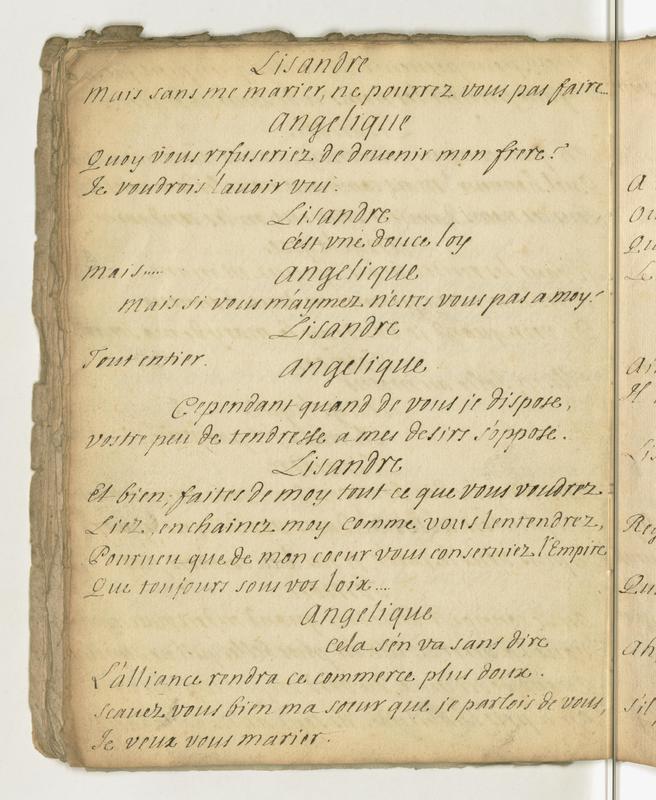 Lisandre
Mais sans me marier, ne pourrez vous pas faire...
Angelique
Quoy vous refuseriez de devenir mon frere?
Je voudrois lavoir veu.
Lisandre
c'est vne douce loy
Mais.....
Angelique
Mais si vous m'aymez n'estes vous pas a moy?
Lisandre
Tout entier.
Angelique
Cependant quand de vous je dispose,
vostre peu de tendresse a mes desirs s'oppose.
Lisandre
Et bien, faites de moy tout ce que vous voudrez
Liez, enchainez moy comme vous lentendrez,
Pourueu que de mon coeur vous conseruiez l'Empire
Que toujours sous vos loix....
Angelique
Cela s'en va sans dire
L'alliance rendra ce commerce plus doux.
scauez vous bien ma soeur que je parlois de vous,
Je veux vous marier.
A
Ou
Qu
Le
Ai
H
Lis
Rey
Qu
Ah
s'il